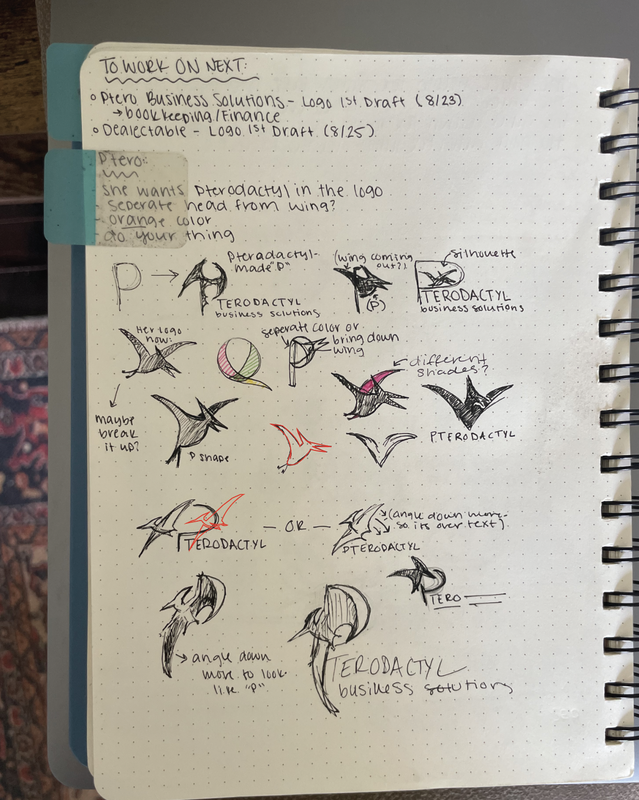 TO WORK ON NEXT:
Ptero Business Solutions - Logo 1st Draft (8/23)
→ bookkeeping/Finance
Dealectable - Logo 1st Draft (8/25)
Ptero:
she wants pterodactyl in the logo
- seperate head from wing?
- orange color
- do your thing
P →
Pteradactyl-
made "P"
TERODACTYL
business solutions
(wing coming
out?)
(P)
silhouette
TERODACTYL
business solutions
Her logo
now:
seperate color or
bring down
wing
different
shades?
maybe
break
it up?
P shape
PTERODACTYL
TERODACTYL
- OR -
(angle down more
so its over text)
PTERODACTYL
TERO
→ angle down
more to look
like "P"
TERODACTYL
business solutions